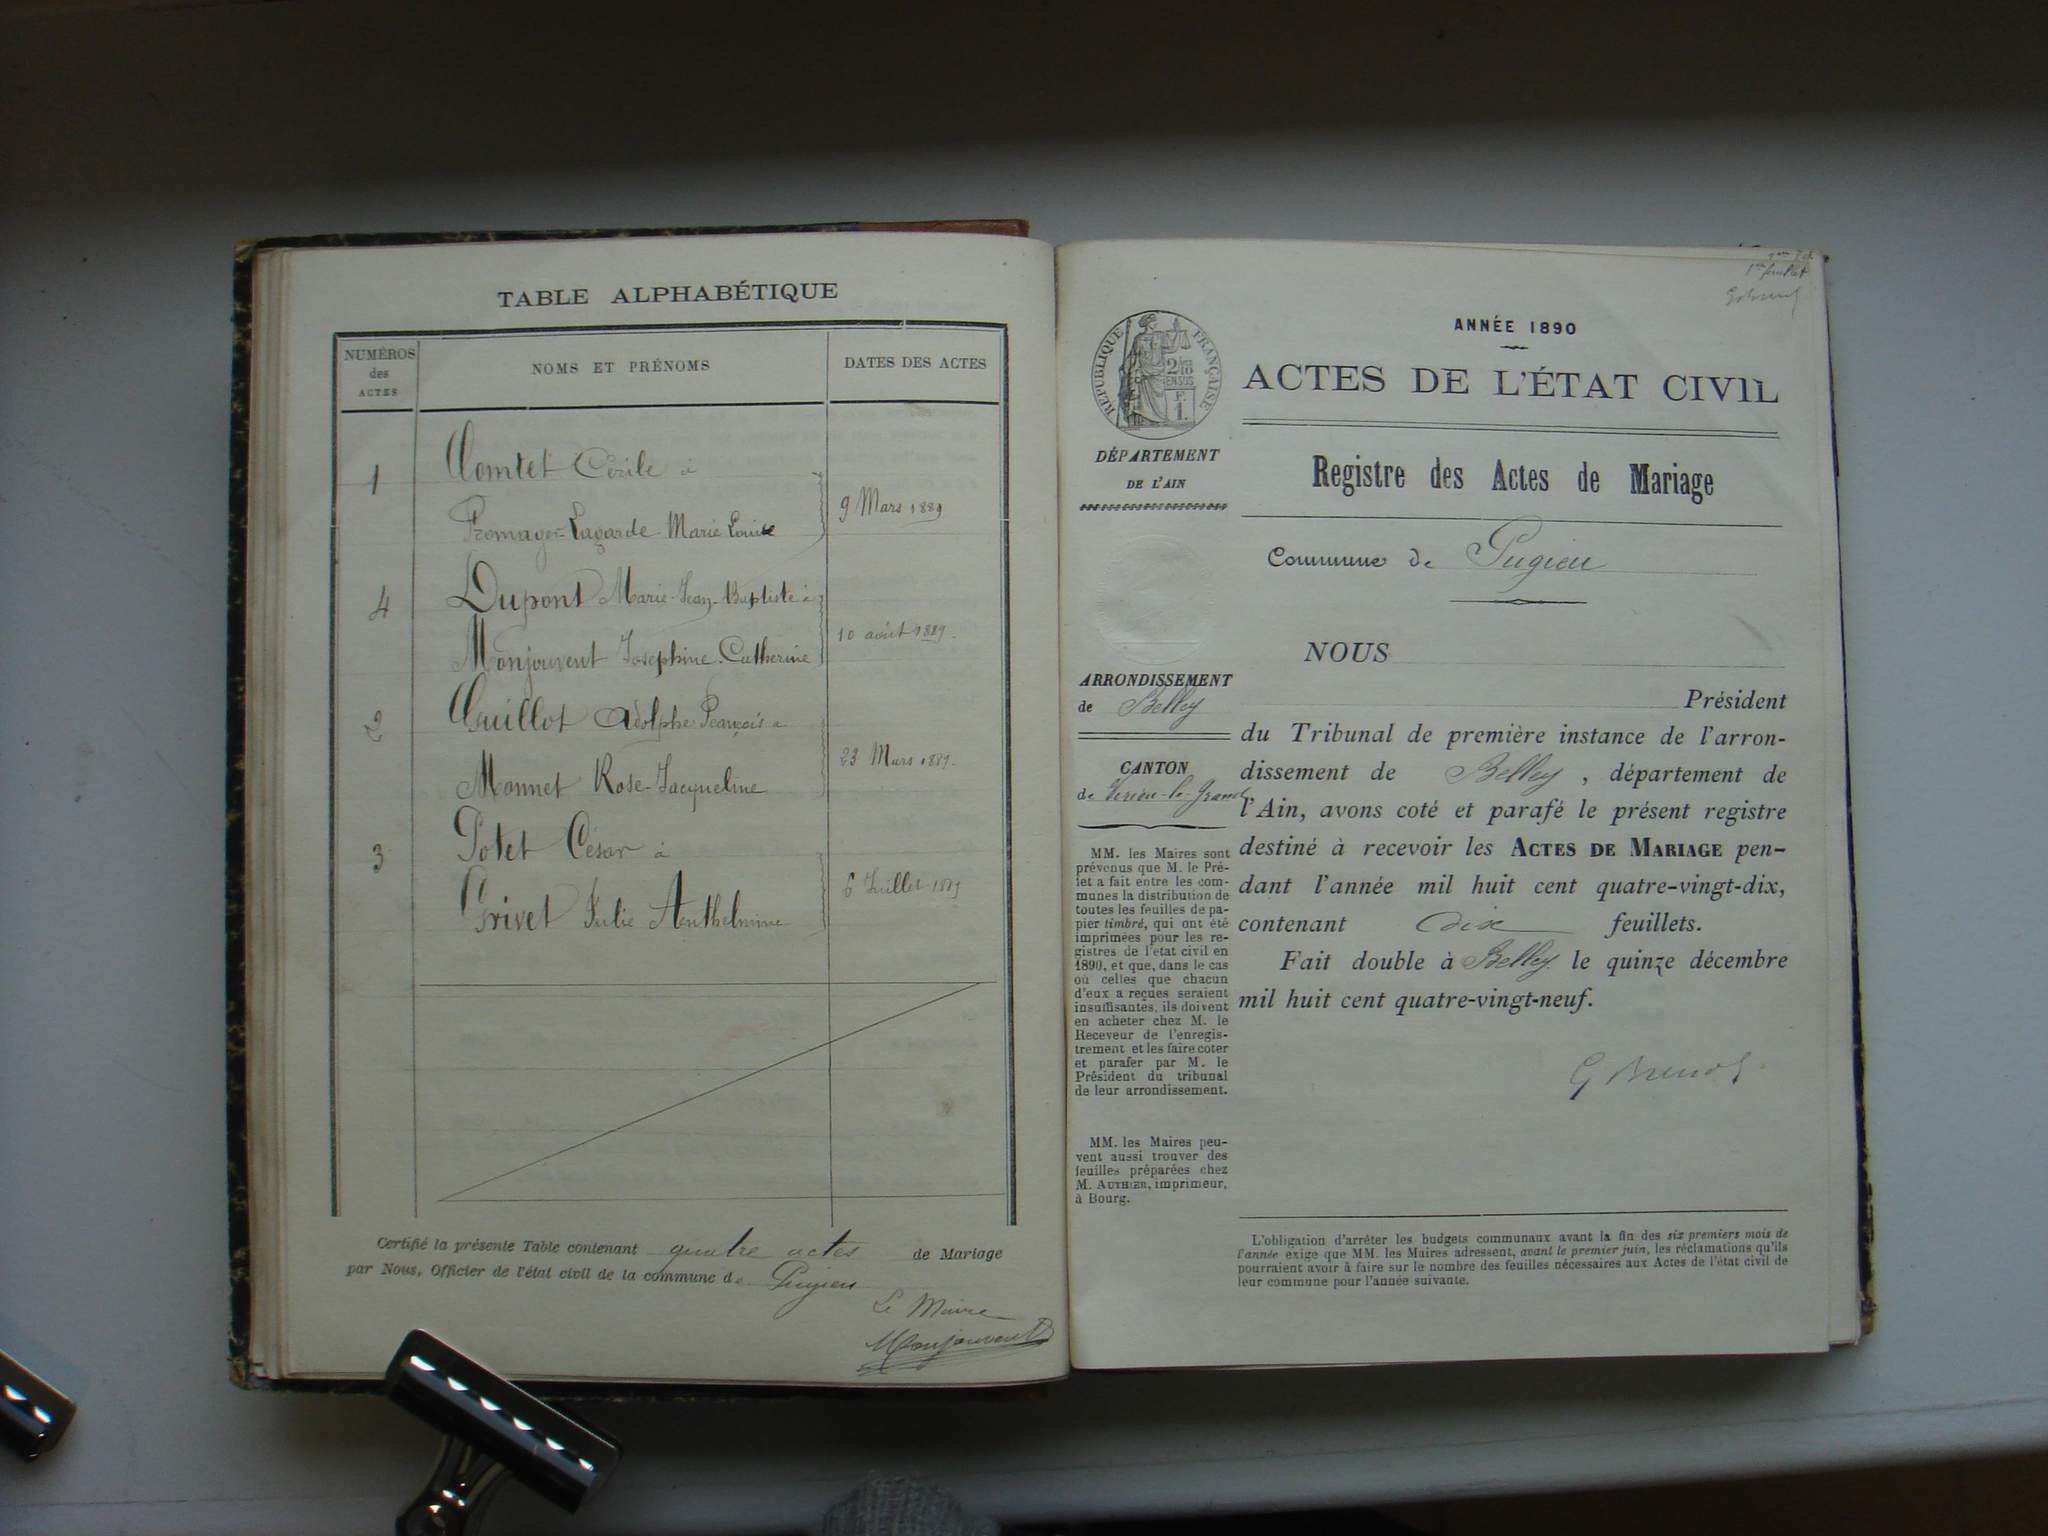 TABLE ALPHABÉTIQUE
NUMÉROS
des
ACTES
NOMS ET PRÉNOMS
DATES DES ACTES
1
Comtet Cécile à
Fromager-Lagarde Marie Louise
9 Mars 1889
4
Dupont Marie-Jean-Baptiste à
Monjouvent Josephine-Catherine
10 août 1889.
2
Guillot Adolphe François à
Monnet Rose-Jacqueline
23 Mars 1889.
3
Potet César à
Grivet Julie Anthelmine
6 Juillet 1889
Certifié la présente Table contenant quatre actes de Mariage
par Nous, Officier de l'état civil de la commune de Pugieu
Le Maire
Monjouvent
1er feuillet
ANNÉE 1890
ACTES DE L'ÉTAT CIVIL
RÉPUBLIQUE FRANÇAISE
2/10
EN SUS
F.
1.
DÉPARTEMENT
DE L'AIN
Registre des Actes de Mariage
Commune de Pugieu
NOUS
ARRONDISSEMENT
de Belley
CANTON
de Virieu-le-Grand
MM. les Maires sont
prévenus que M. le Pré-
fet a fait entre les com-
munes la distribution de
toutes les feuilles de pa-
pier timbré, qui ont été
imprimées pour les re-
gistres de l'etat civil en
1890, et que, dans le cas
où celles que chacun
d'eux a reçues seraient
insuffisantes, ils doivent
en acheter chez M. le
Receveur de l'enregis-
trement et les faire coter
et parafer par M. le
Président du tribunal
de leur arrondissement.
MM. les Maires peu-
vent aussi trouver des
feuilles préparées chez
M. AUTHIER, imprimeur,
à Bourg.
Président
du Tribunal de première instance de l'arron-
dissement de Belley, département de
l'Ain, avons coté et parafé le présent registre
destiné à recevoir les ACTES DE MARIAGE pen-
dant l'année mil huit cent quatre-vingt-dix,
contenant dix feuillets.
Fait double à Belley le quinze décembre
mil huit cent quatre-vingt-neuf.
L'obligation d'arrêter les budgets communaux avant la fin des six premiers mois de
l'année exige que MM. les Maires adressent, avant le premier juin, les réclamations qu'ils
pourraient avoir à faire sur le nombre des feuilles nécessaires aux Actes de l'état civil de
leur commune pour l'année suivante.